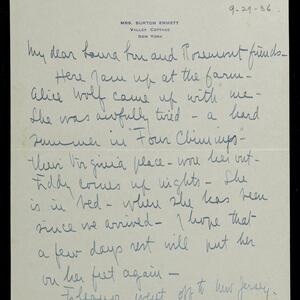 9-29-36.
MRS. BURTON EMMETT
VALLEY COTTAGE
NEW YORK
My dear Laura Lou and Rosemont friends -
Here I am up at the farm -
Alice Wolf came up with me -
She was awfully tired - a hard
summer in "Four Chimneys" -
Their Virginia place - wore her out -
Eddy comes up nights - She
is in bed - where she has been
since we arrived - I hope that
a few days rest will put her
on her feet again -
went off to New Jersey